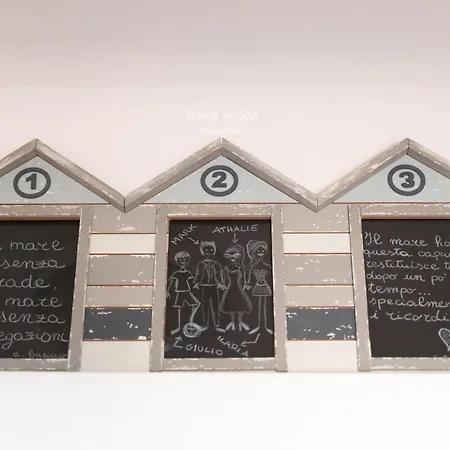 Home & Sea
1
mare
senza
rade
mare
senza
egazioni
a. baricco
2
MARK
ATHALIE
GIULIO
ILARIA
3
Il mare ha
questa capa
restituisce t
dopo un po'
tempo..
specialmen
i ricordi